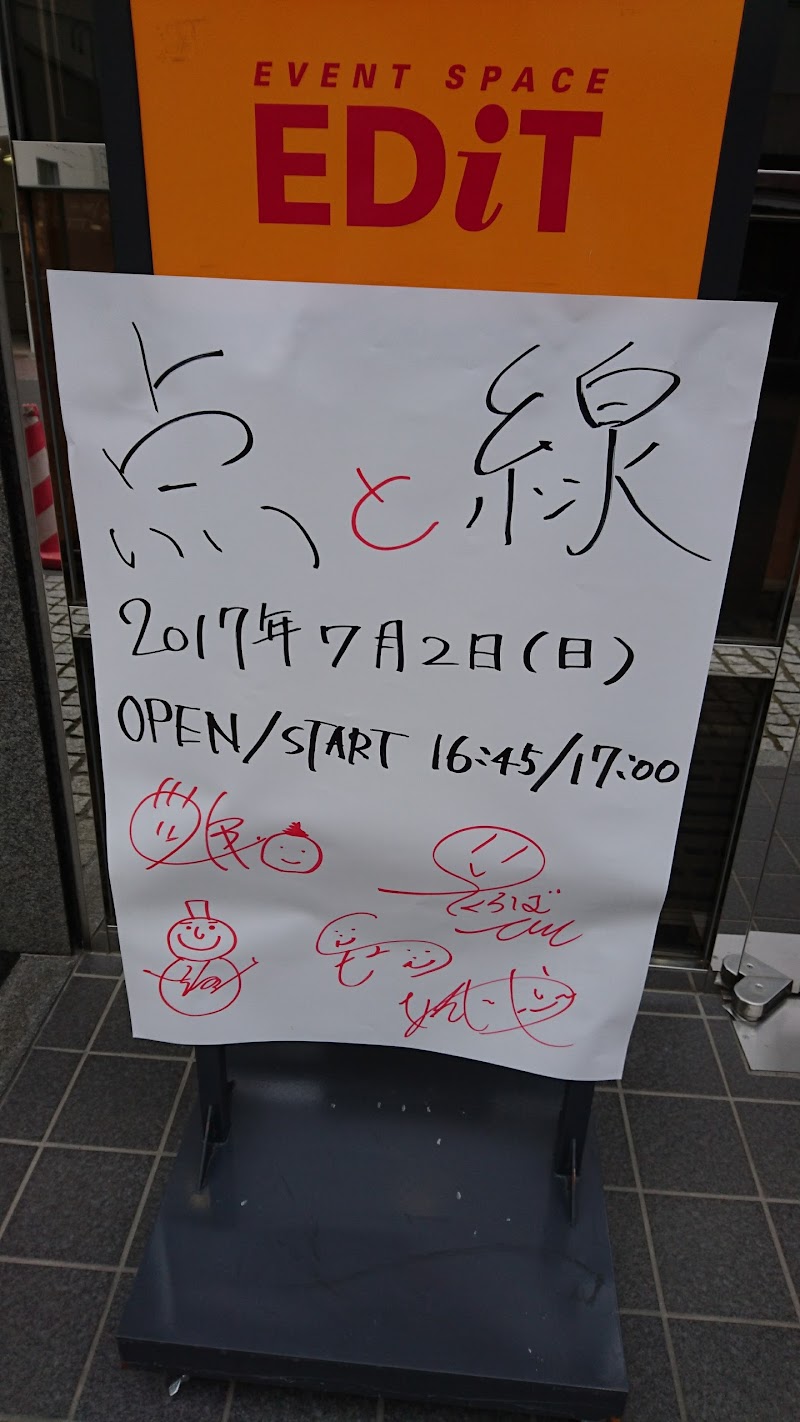 EVENT SPACE
EDiT
点と線
2017年7月2日(日)
OPEN/START 16:45/17:00
くろば